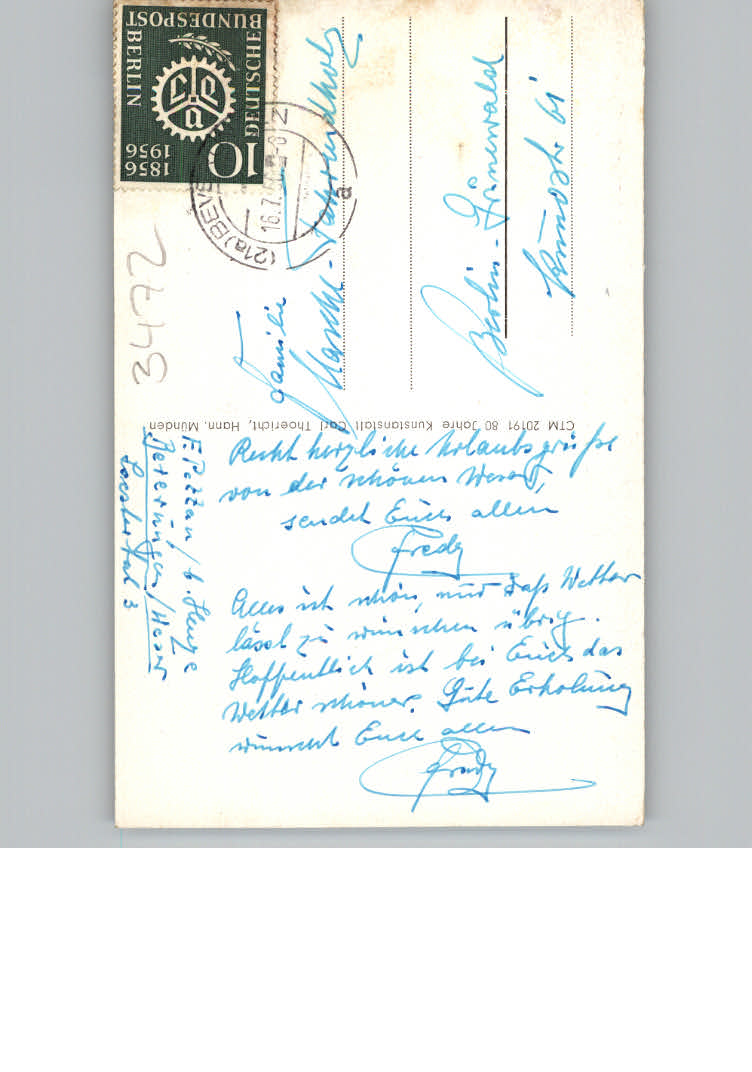 Recht herzliche Urlaubsgrüße
von der schönen Weser,
sendet Euch allen
Fredy
Alles ist schön, nur daß Wetter
lässt zu wünschen übrig.
Hoffentlich ist bei Euch das
Wetter schöner. Gute Erholung
wünscht Euch allen
Fredy
F. / b. Henze
Beverungen/Weser
3
CTM 20191 80 Jahre Kunstanstalt Carl Thoericht, Hann. Münden
Familie
Berlin-Grunewald
61
DEUTSCHE
BUNDESPOST
BERLIN
1856
1956
10
cea
(21a) BEVE
16.7.
a
3472